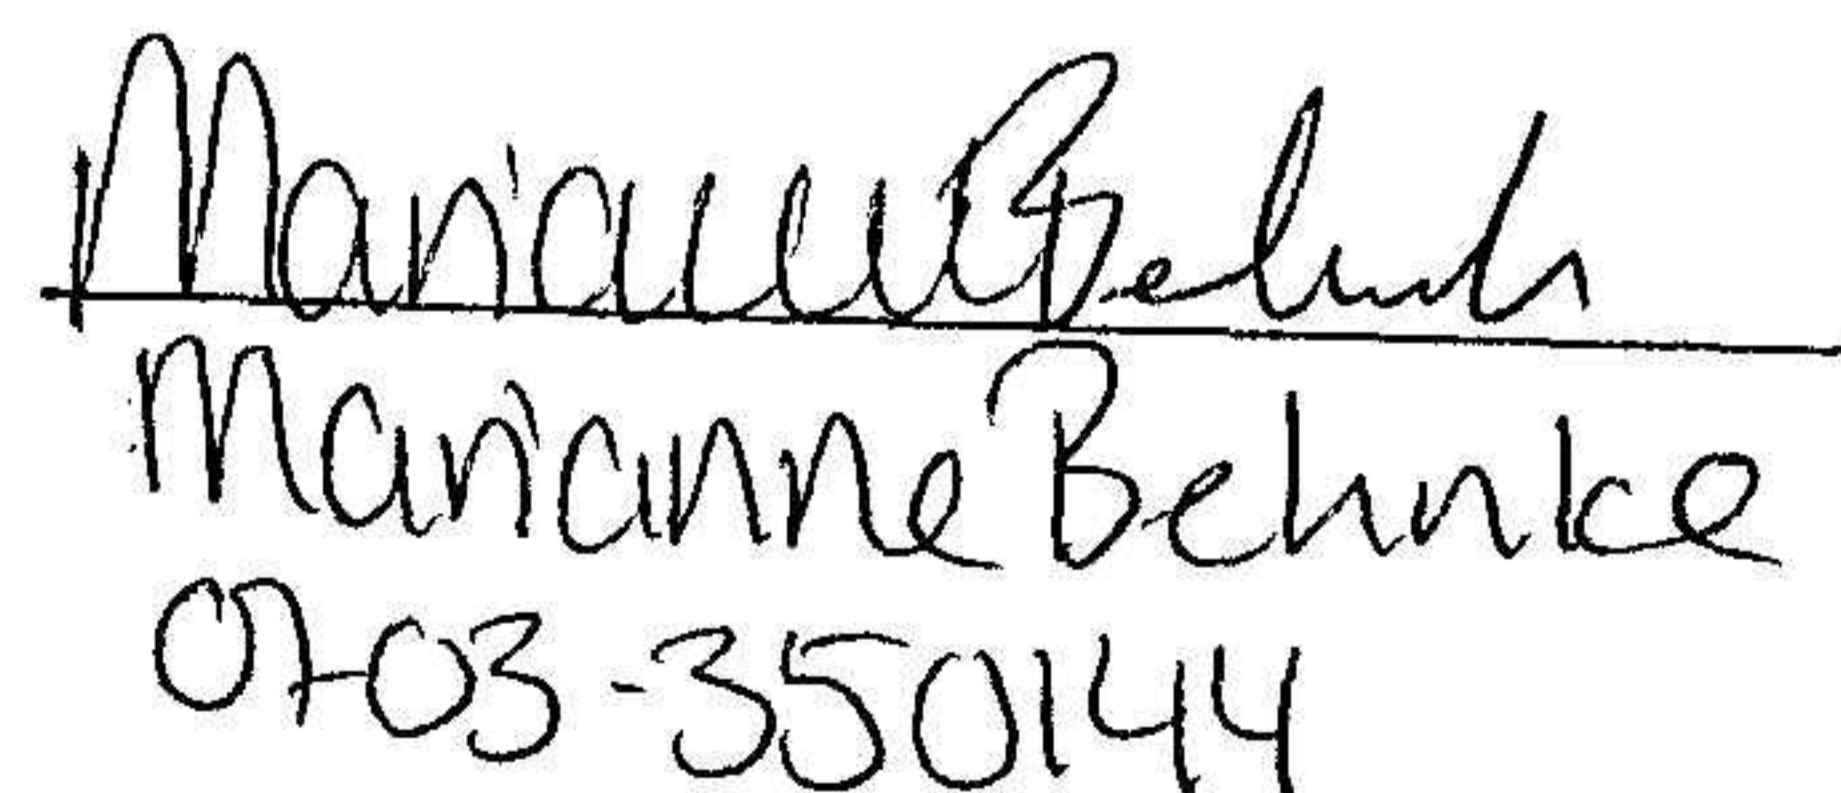 Marianne Behnke
Marianne Behnke
07-03-350144